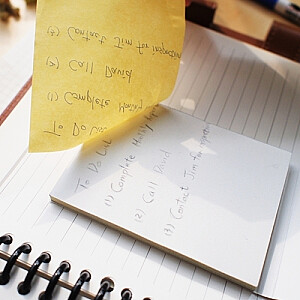 (3) Contact Jim for inspection
(2) Call David
(1) Complete
To Do List
To Do List
(1) Complete
(2) Call David
(3) Contact Jim for